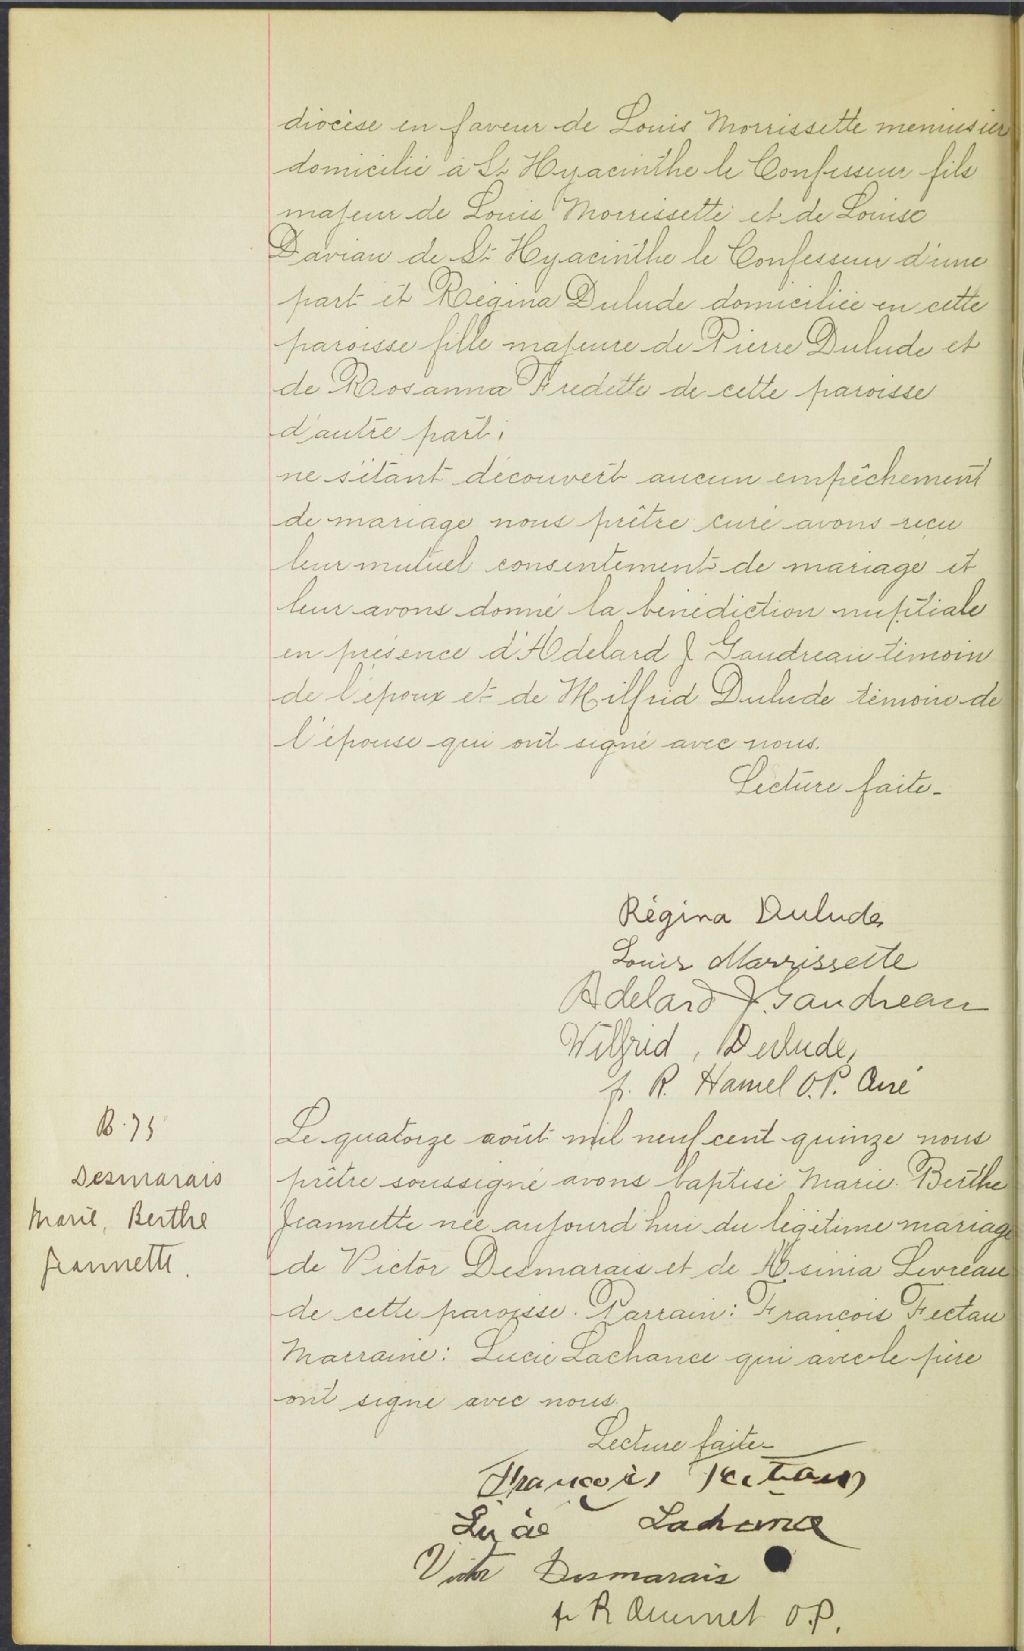 diocèse en faveur de Louis Morrissette menuisier
domicilié à St Hyacinthe le Confesseur fils
majeur de Louis Morrissette et de Louise
Davian de St Hyacinthe le Confesseur d'une
part et Régina Dulude domiciliée en cette
paroisse fille majeure de Pierre Dulude et
de Rosanna Fredette de cette paroisse
d'autre part;
ne s'étant découvert aucun empêchement
de mariage nous prêtre curé avons reçu
leur mutuel consentement de mariage et
leur avons donné la bénédiction nuptiale
en présence d'Adelard J Gaudreau témoin
de l'époux et de Wilfrid Dulude témoin de
l'épouse qui ont signé avec nous.
Lecture faite-
Régina Dulude
Louis Morrissette
Adelard J. Gaudreau
Wilfrid, Dulude,
fr. R. Hamel O.P. Curé
B.75
Desmarais
Marie, Berthe
Jeannette.
Le quatorze août mil neuf cent quinze nous
prêtre soussigné avons baptisé Marie Berthe
Jeannette née aujourd'hui du légitime mariage
de Victor Desmarais et de Levreau
de cette paroisse. Parrain: Francois Fectau
Marraine: Lucie Lachance qui avec le père
ont signé avec nous.
Lecture faite-
François Fectau
Lucie Lachance
Victor Desmarais
fr R Ouimet O.P.